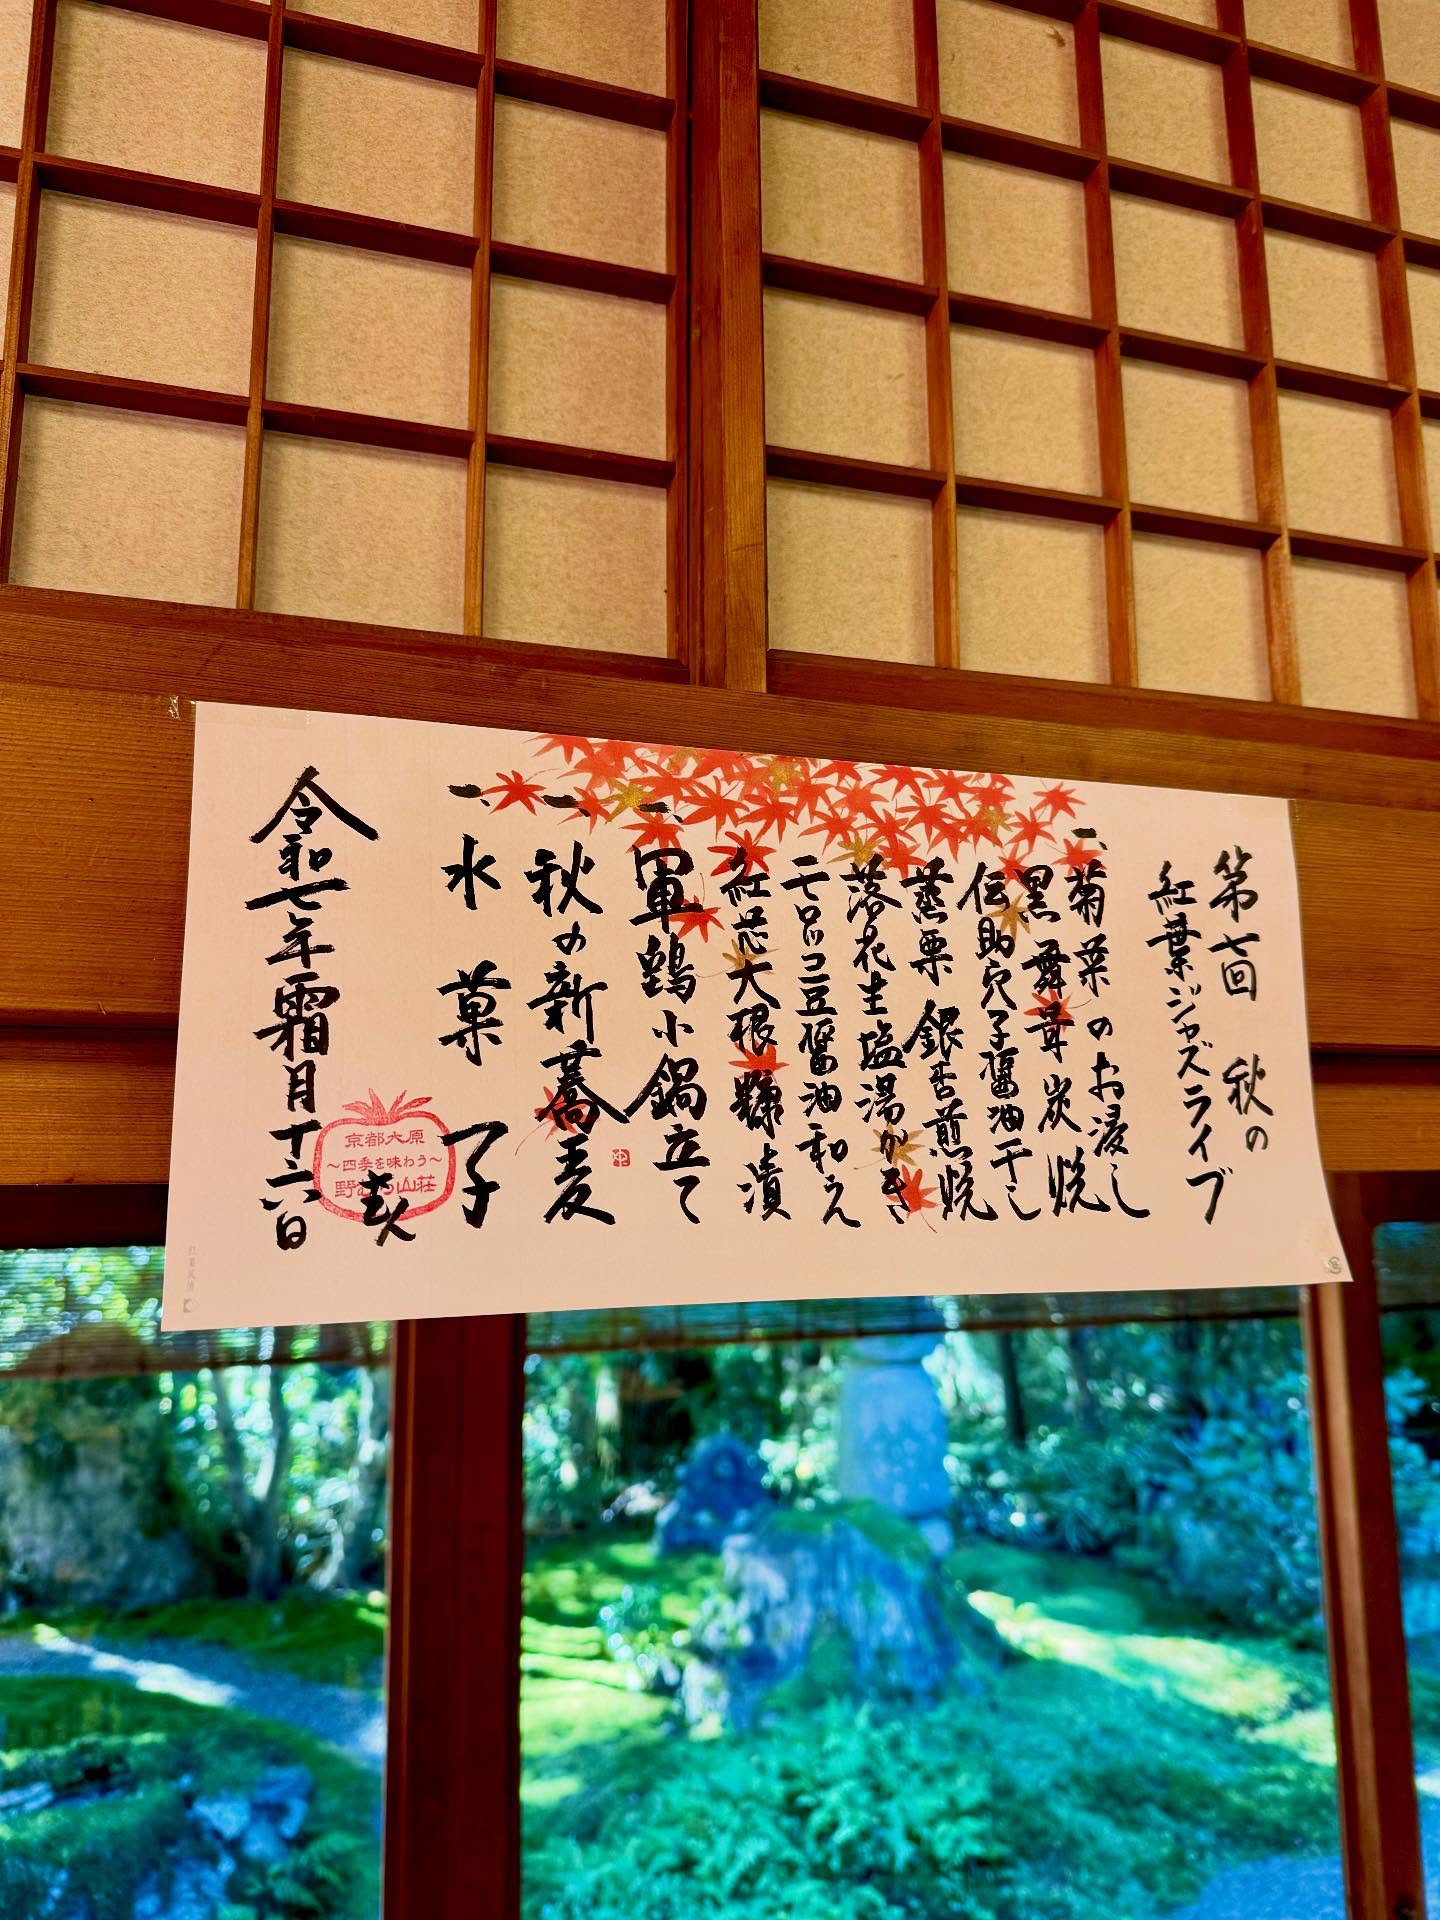 第七回 秋の
紅葉ジャズライブ
一、菊菜のお浸し
黒舞茸炭焼
伝助穴子醤油干し
蒸栗 銀杏煎焼
落花生塩湯がき
モロッコ豆醤油和え
紅芯大根糠漬
一、軍鶏小鍋立て
一、秋の新蕎麦
一、水菓子
令和七年霜月十六日
京都大原
〜四季を味わう〜
野むら山荘